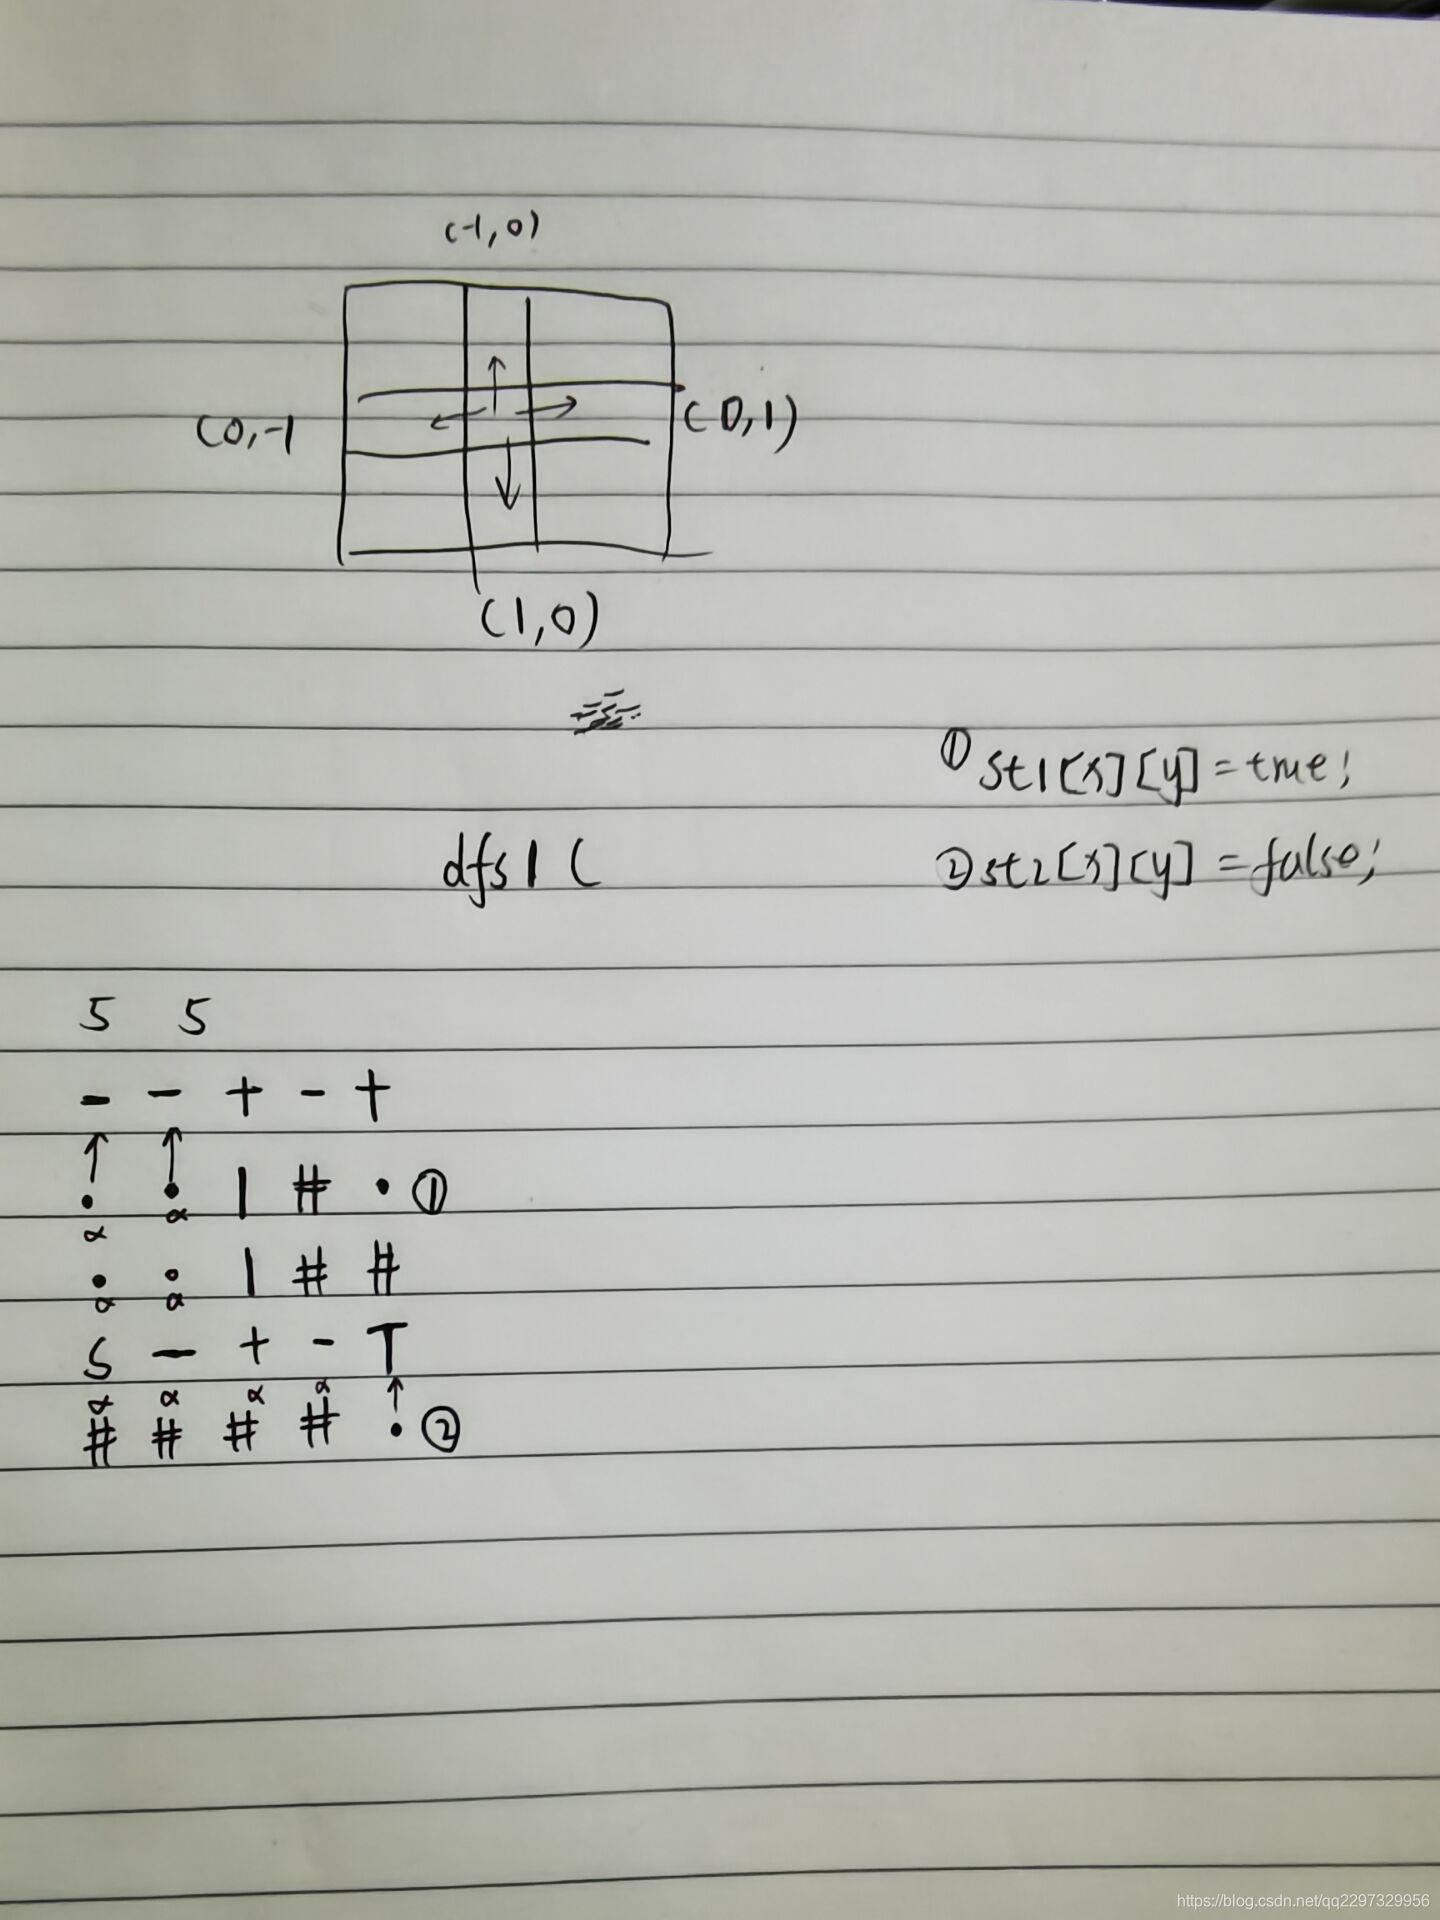 (-1,0)
(0,-1
(0,1)
(1,0)
① st1[x][y]=true;
dfs1(
② st2[x][y]=false;
5 5
- - + - +
↑ ↑
. . | # . ①
α α
. . | # #
α α
S - + - T
α α α α ↑
# # # # . ②
https://blog.csdn.net/qq2297329956